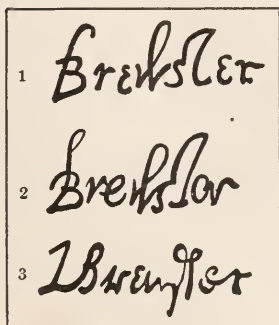 1 Brewster
2 Brewster
3 Brewster